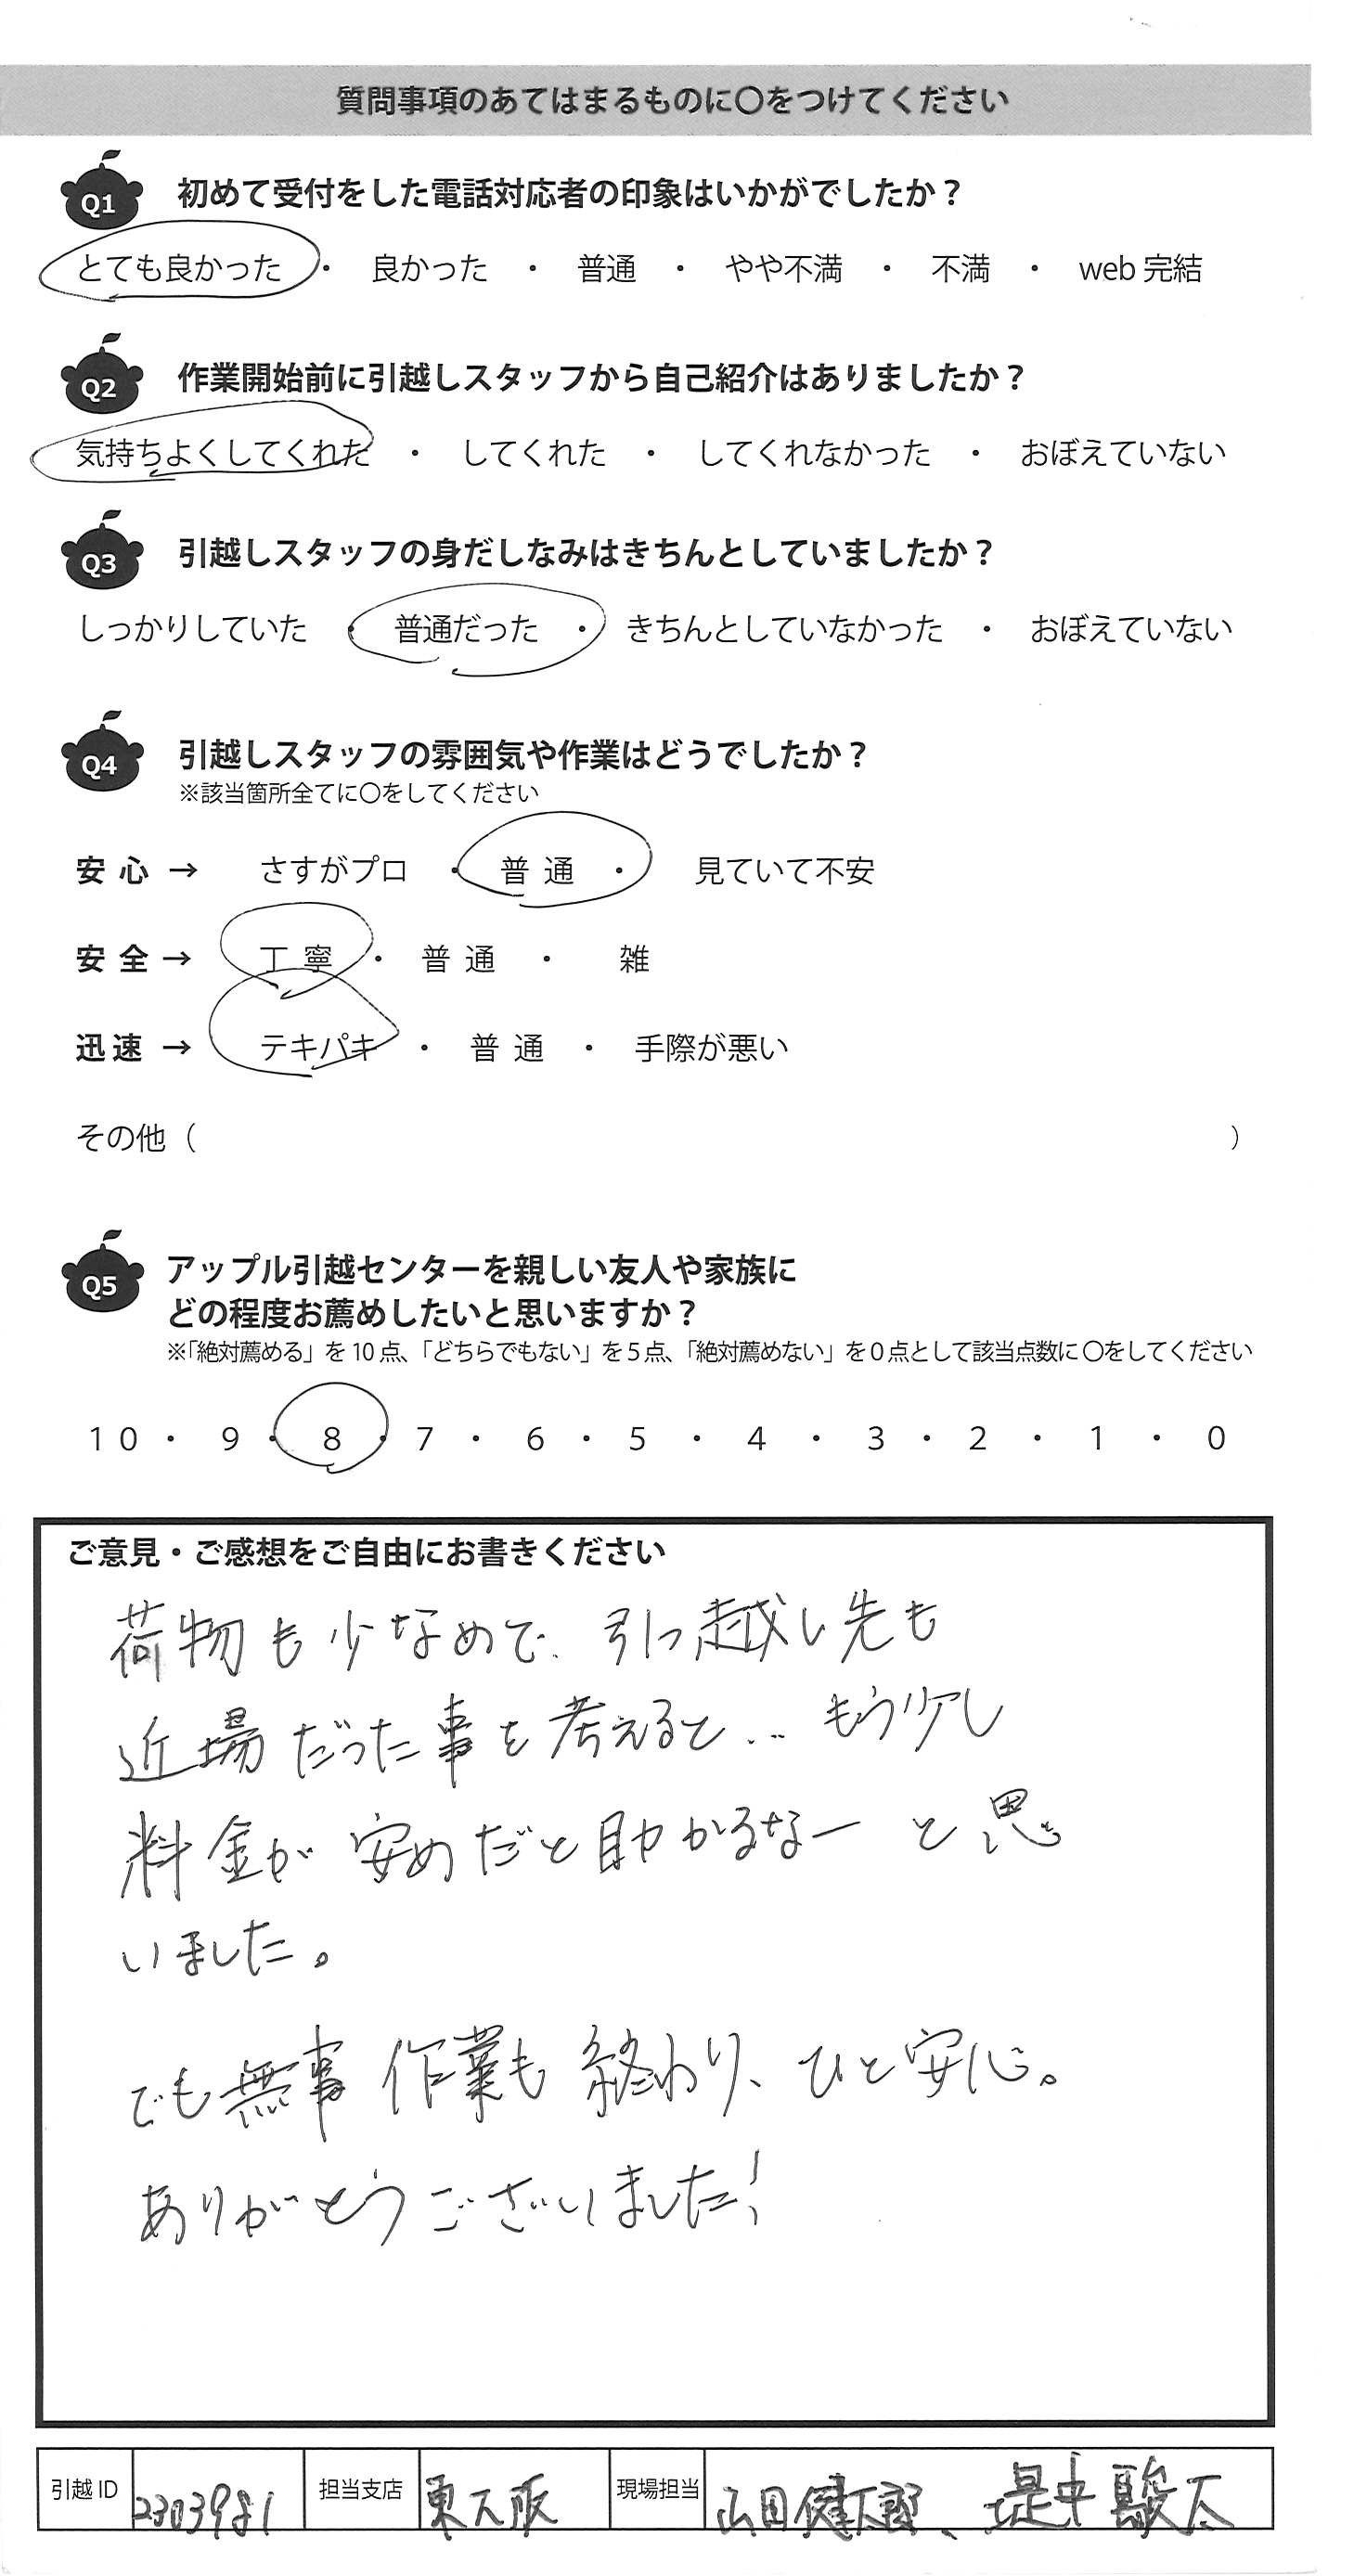 質問事項のあてはまるものに〇をつけてください
Q1 初めて受付をした電話対応者の印象はいかがでしたか？
とても良かった ・ 良かった ・ 普通 ・ やや不満 ・ 不満 ・ web 完結
Q2 作業開始前に引越しスタッフから自己紹介はありましたか？
気持ちよくしてくれた ・ してくれた ・ してくれなかった ・ おぼえていない
Q3 引越しスタッフの身だしなみはきちんとしていましたか？
しっかりしていた ・ 普通だった ・ きちんとしていなかった ・ おぼえていない
Q4 引越しスタッフの雰囲気や作業はどうでしたか？
※該当箇所全てに〇をしてください
安心 → さすがプロ ・ 普通 ・ 見ていて不安
安全 → 丁寧 ・ 普通 ・ 雑
迅速 → テキパキ ・ 普通 ・ 手際が悪い
その他（ ）
Q5 アップル引越センターを親しい友人や家族に
どの程度お薦めしたいと思いますか？
※「絶対薦める」を 10 点、「どちらでもない」を 5 点、「絶対薦めない」を 0 点として該当点数に〇をしてください
10 ・ 9 ・ 8 ・ 7 ・ 6 ・ 5 ・ 4 ・ 3 ・ 2 ・ 1 ・ 0
ご意見・ご感想をご自由にお書きください
荷物も少なめで、引っ越し先も
近場だった事を考えると… もう少し
料金が安めだと助かるなー と思
いました。
でも無事作業も終わり、ひと安心。
ありがとうございました！
引越 ID 2303981 担当支店 東大阪 現場担当 山田健太郎、堤中駿太